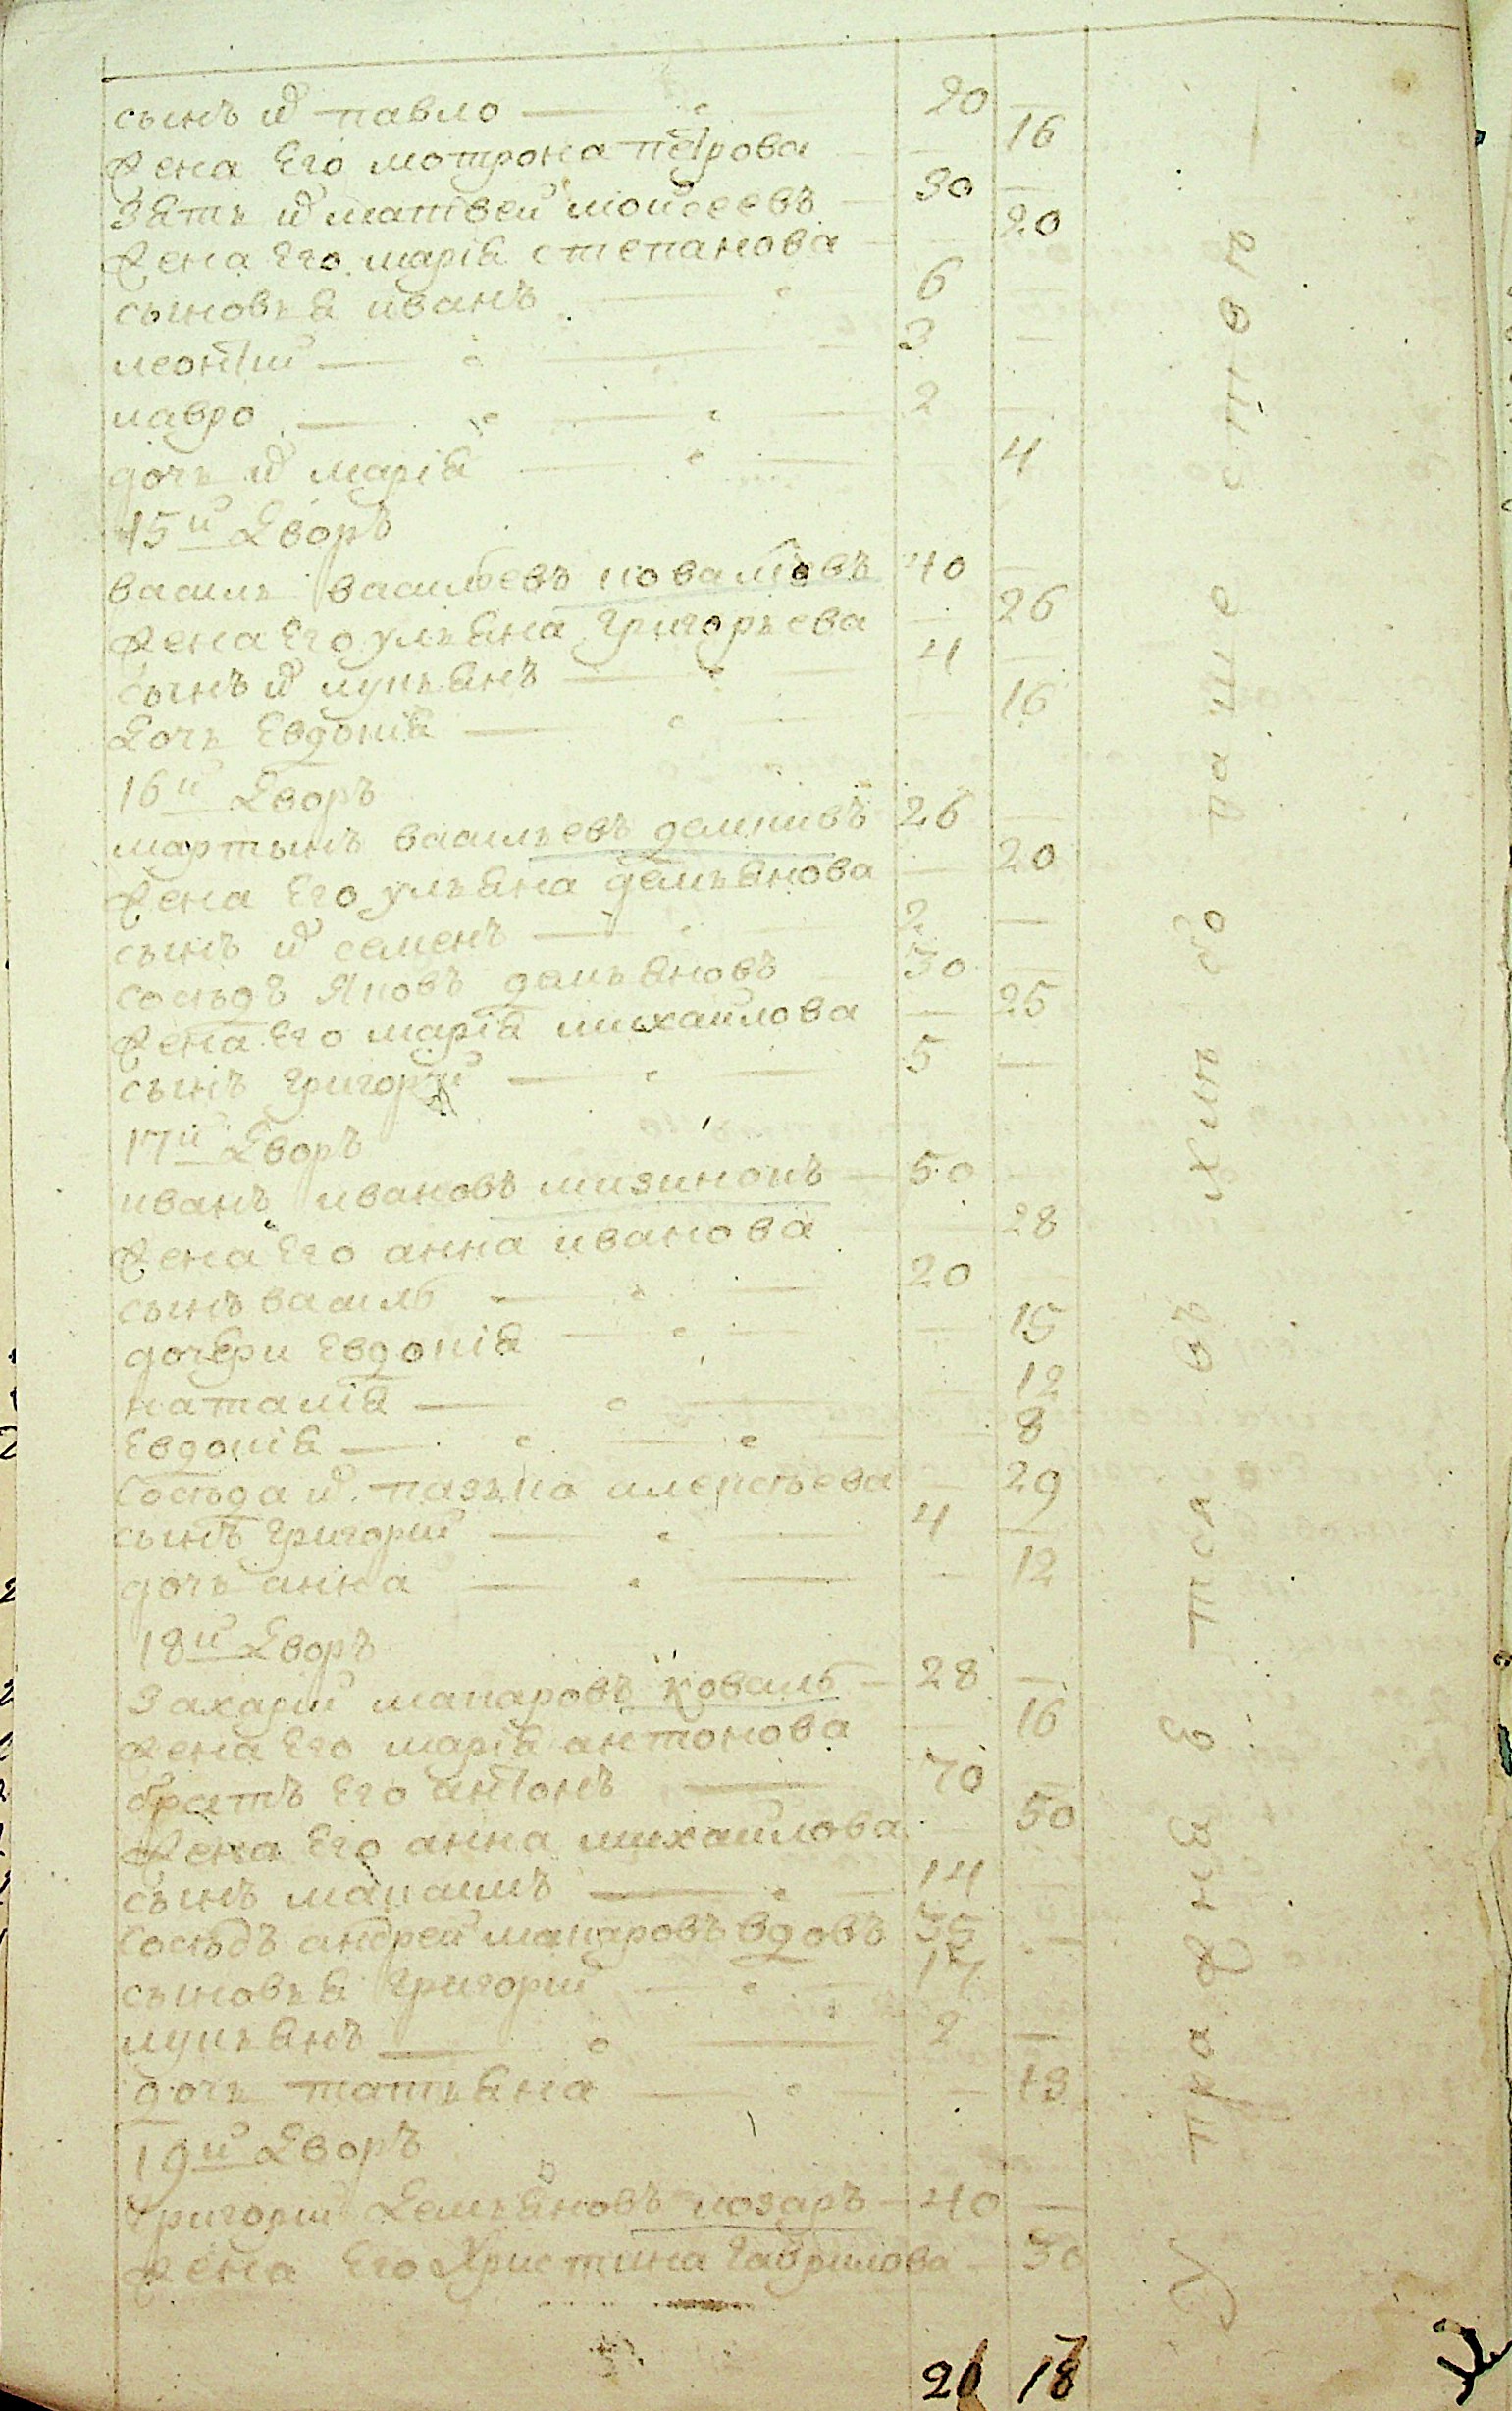 сынъ и҃ павло 20 —
жена Его мотрона петрова — 16
Зять и҃ матвей мойсеевъ 30 —
жена его марія степанова — 20
сыновья иванъ 6 —
леонтій 3 —
лавро 2 —
дочь и҃ марія — 4
15й Дворъ
василь васильевъ коваліовъ 40 —
жена Его ульяна григорьева — 26
сынъ и҃ лукьянъ 4 —
Дочь Евдокія — 16
16й Дворъ
мартынъ васильевъ демкивъ 26 —
жена Его ульяна демьянова — 20
сынъ и҃ семенъ 2 —
сосѣдъ Яковъ демьяновъ 30 —
жена Его марія михайлова — 25
сынъ григорій 5 —
17й Дворъ
иванъ ивановъ мизинокъ 50 —
жена Его анна иванова 28
сынъ василь 20 —
дочери Евдокія — 15
наталія — 12
Евдокія — 8
Сосѣда и҃ пазька алексѣева — 29
сынъ григорій 4 —
дочь анна — 12
18й Дворъ
Захарій макаровъ коваль 28 —
жена Его марія антонова — 16
братъ Его антонъ 70 —
жена Его анна михайлова — 50
сынъ макаимъ 14 —
Сосѣдъ андрей макаровъ вдовъ 35 —
сыновья григорій 17
лукьянъ 2 —
дочь татьяна — 13
19й Дворъ
григорій Демьяновъ козаръ 40 —
жена Его Христина гаврилова — 30
20 18